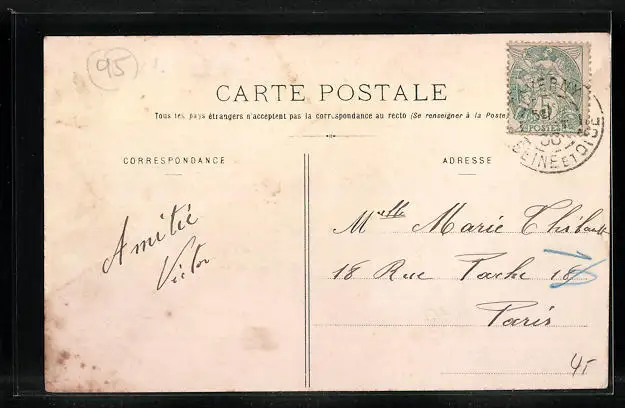 95
CARTE POSTALE
Tous les pays étrangers n'acceptent pas la correspondance au recto (Se renseigner à la Poste)
CORRESPONDANCE
ADRESSE
Amitié
Victor
Melle Marie Thibault
18 Rue 18
Paris
45
5
POSTES
SEINE ET OISE